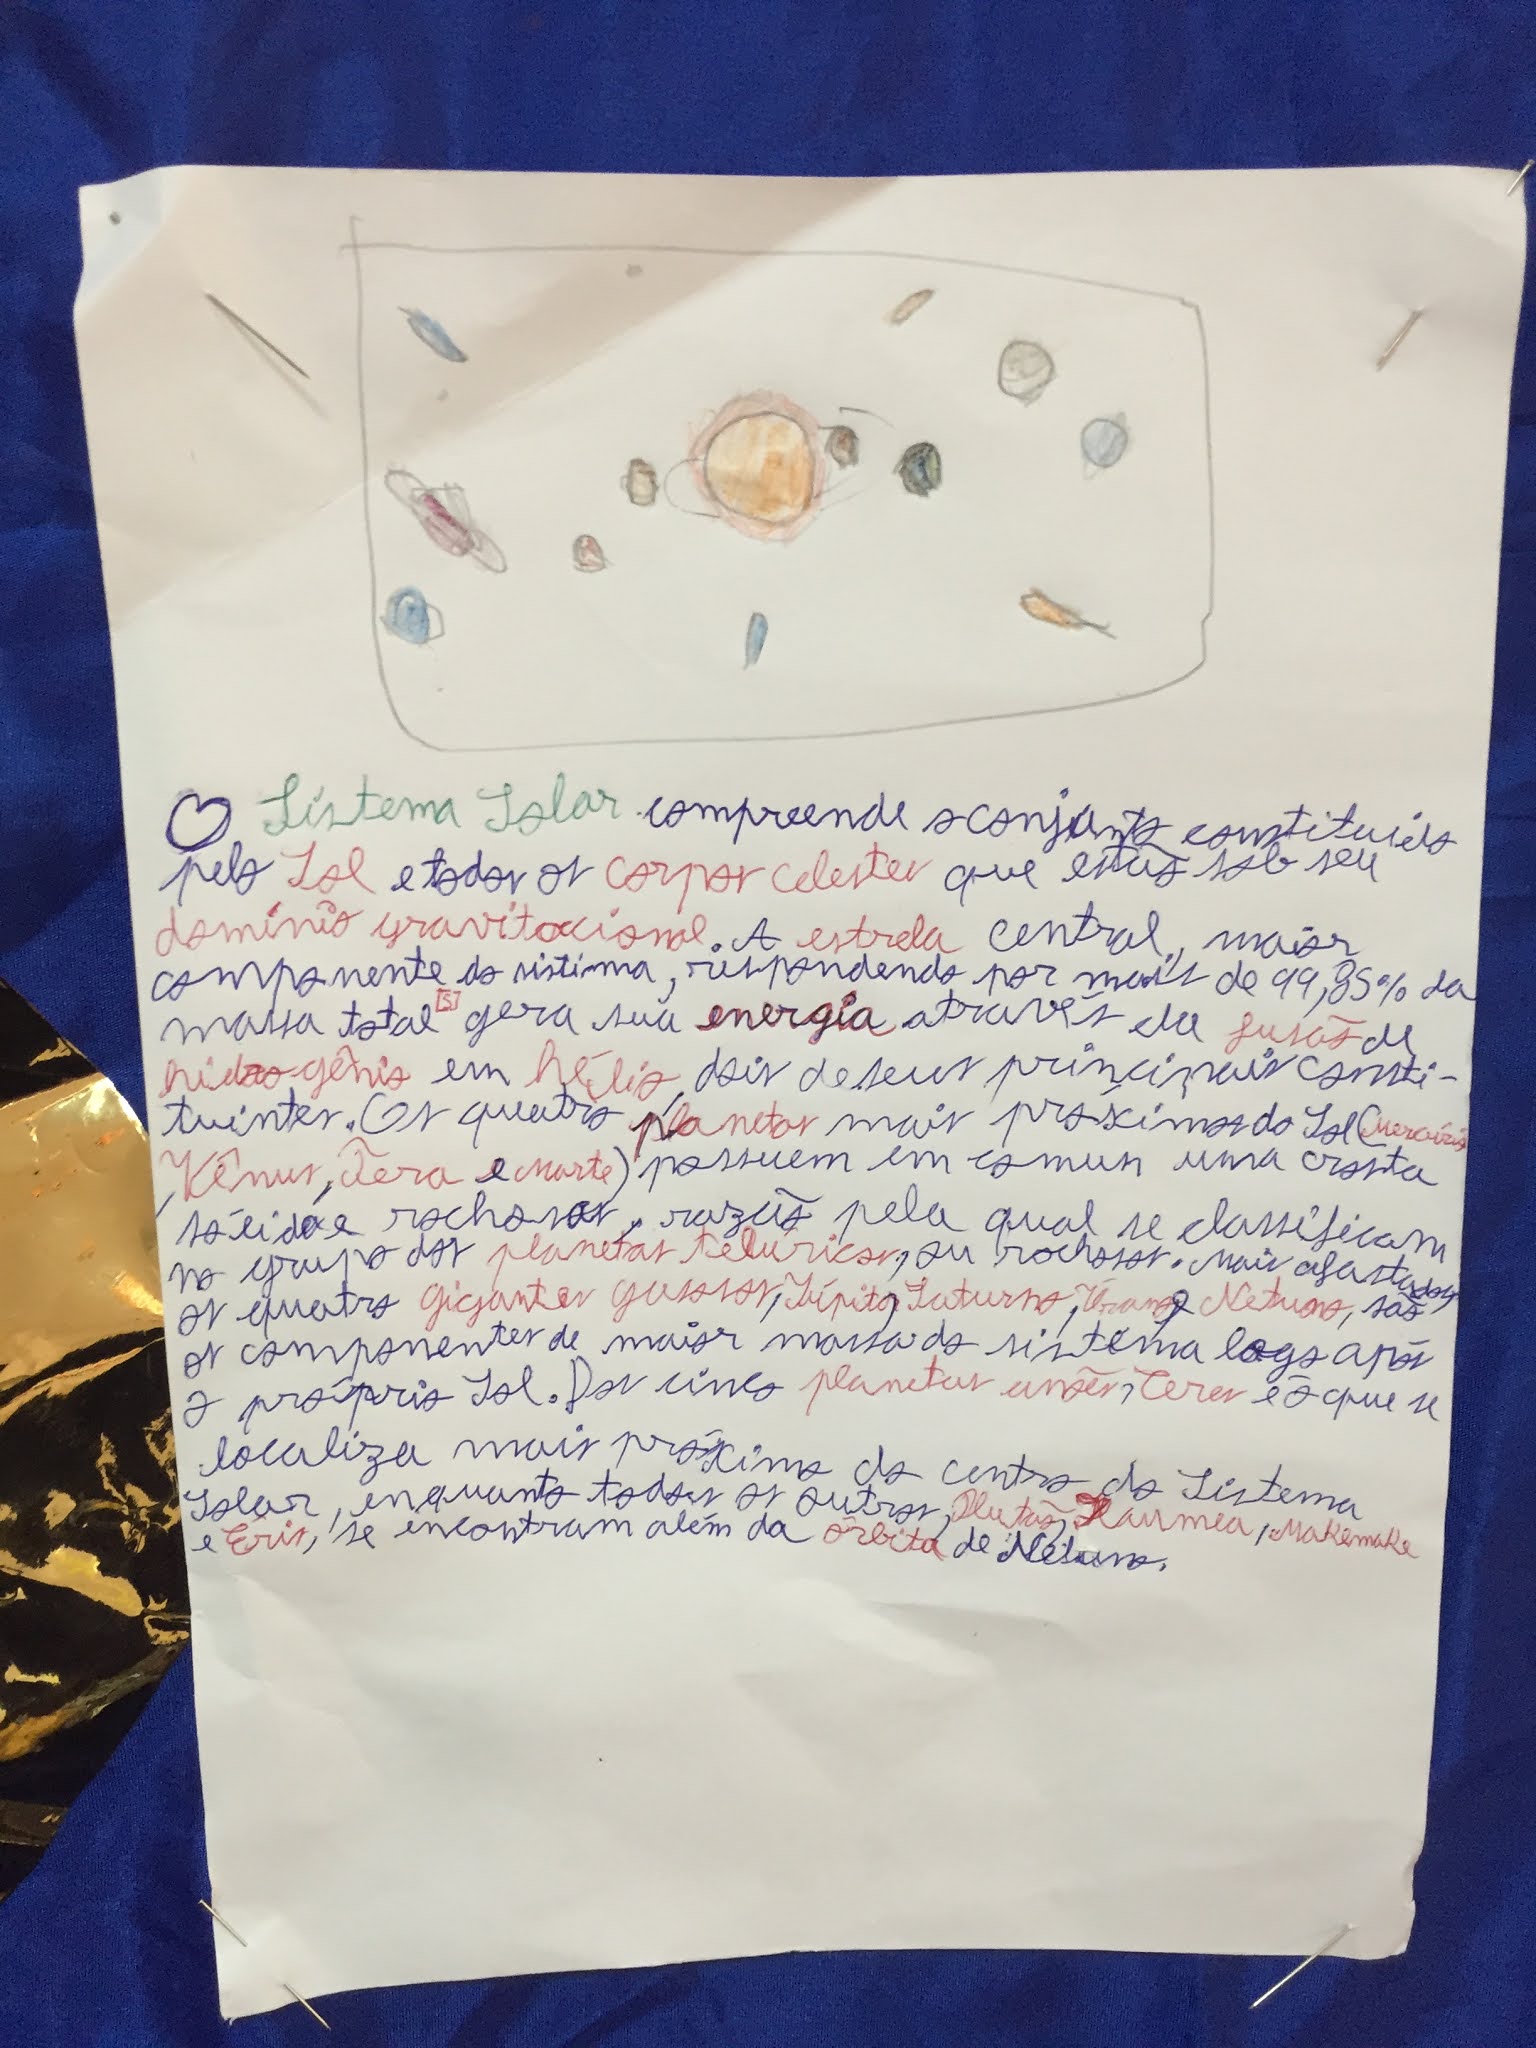 O Sistema Solar compreende o conjunto constituido
pelo Sol e todos os corpos celestes que estão sob seu
domínio gravitacional. A estrela central, maior
componente do sistema, respondendo por mais de 99,85% da
massa total [5] gera sua energia através da fusão de
hidrogênio em hélio, dois de seus principais consti-
tuintes. Os quatro planetas mais próximos do Sol (Mercúrio
, Vênus, Tera e Marte) possuem em comum uma crosta
sólida e rochosas, razão pela qual se classificam
no grupo dos planetas telúricos, ou rochosos. Mais afastados,
os quatro gigantes gasosos, Júpiter, Saturno, Urano e Netuno, são
os componentes de maior massa do sistema logo após
o próprio Sol. Dos cinco planetas anões, Ceres é o que se
localiza mais próximo do centro do Sistema
Solar, enquanto todos os outros, Plutão, Haumea, Makemake
e Éris, se encontram além da órbita de Netuno.